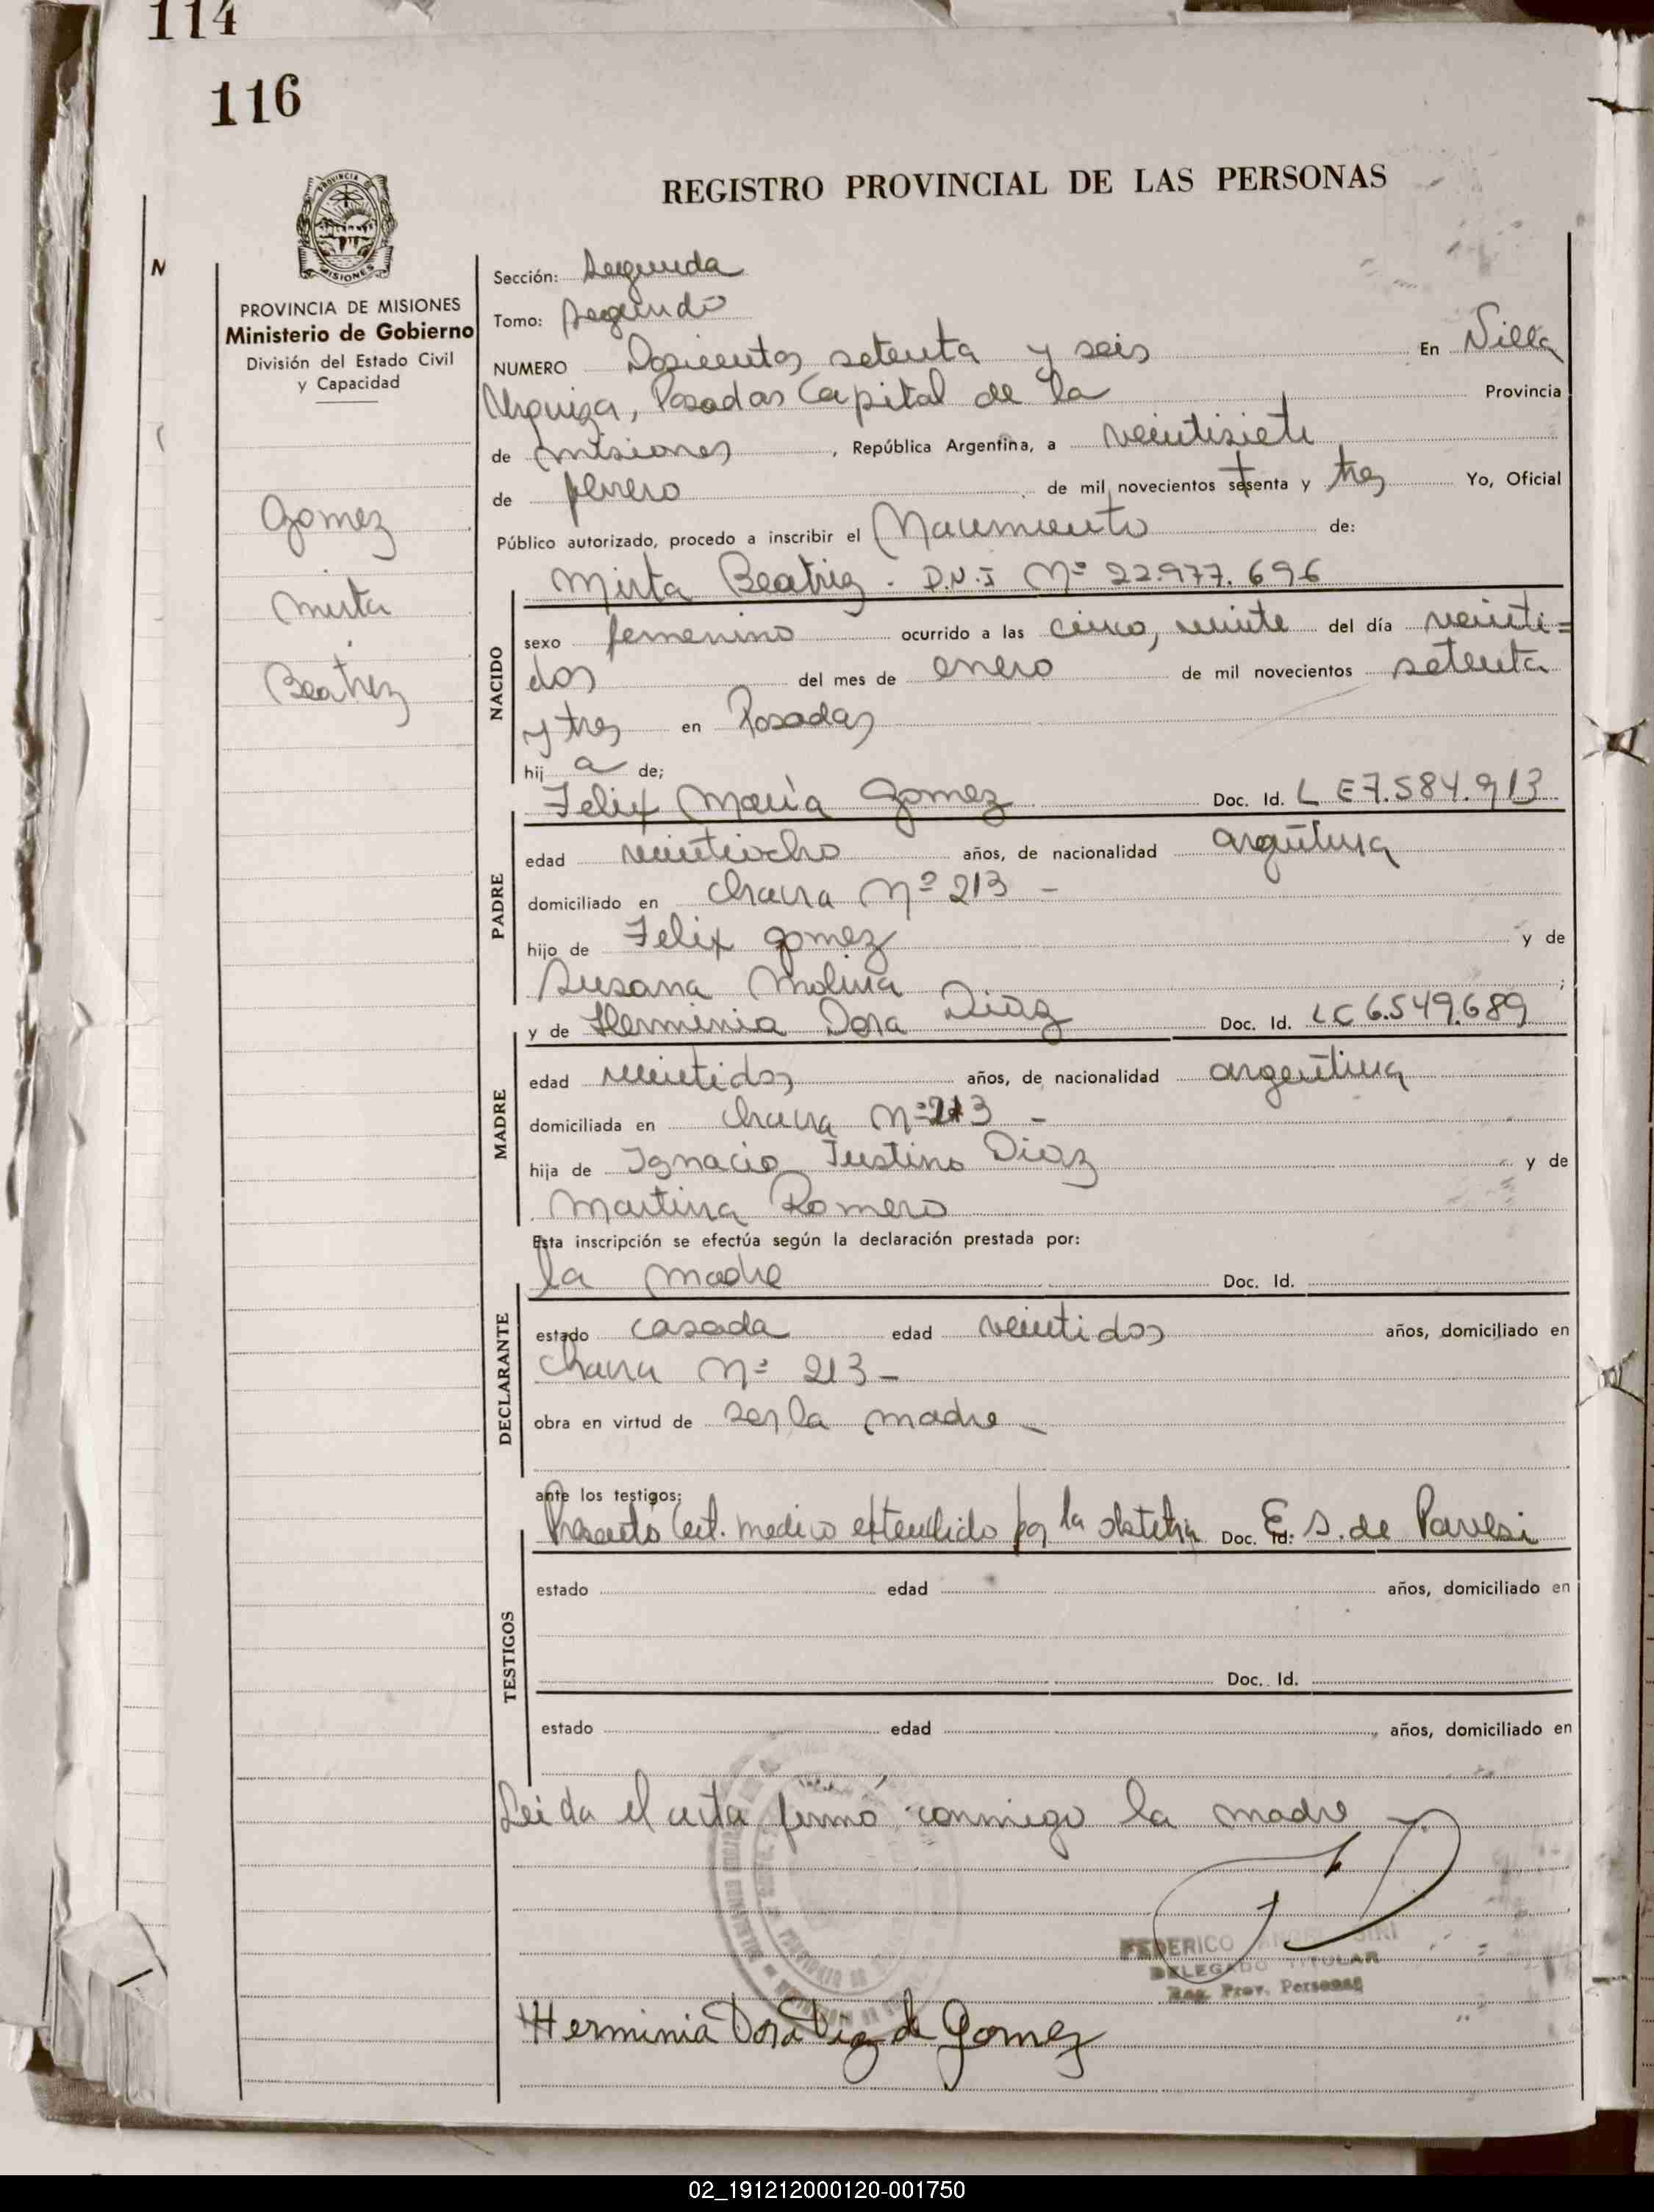 114
116
REGISTRO PROVINCIAL DE LAS PERSONAS
PROVINCIA
MISIONES
PROVINCIA DE MISIONES
Ministerio de Gobierno
División del Estado Civil
y Capacidad
Gomez
Mirta
Beatriz
Sección: Segunda
Tomo: Segundo
NUMERO Doscientos setenta y seis En Villa
Urquiza, Posadas Capital de la Provincia
de Misiones, República Argentina, a veintisiete
de febrero de mil novecientos setenta y tres Yo, Oficial
Público autorizado, procedo a inscribir el Nacimiento de:
Mirta Beatriz - D.N.I Nº 22.977.696
NACIDO
sexo femenino ocurrido a las cinco, veinte del día veinti=
dos del mes de enero de mil novecientos setenta
y tres en Posadas
hija de;
Felix María Gomez Doc. Id. L E 7.584.913
PADRE
edad veintiocho años, de nacionalidad argentina
domiciliado en chacra Nº 213 -
hijo de Felix gomez y de
Susana Molina ;
y de Herminia Dora Diaz Doc. Id. LC 6.549.689
MADRE
edad veintidos años, de nacionalidad argentina
domiciliada en chacra Nº 213 -
hija de Ignacio Justino Diaz y de
Martina Romero
Esta inscripción se efectúa según la declaración prestada por:
la madre Doc. Id.
DECLARANTE
estado casada edad veintidos años, domiciliado en
Chacra Nº 213 -
obra en virtud de ser la madre -
ante los testigos:
Presento Cert. medico extendido por la obstetra Doc. Id. E. S. de Pavesi
TESTIGOS
estado edad años, domiciliado en
Doc. Id.
estado edad años, domiciliado en
Leida el acta firmó conmigo la madre
FEDERICO
DELEGADO TITULAR
Reg. Prov. Personas
Herminia Dora Diaz de Gomez
02_191212000120-001750